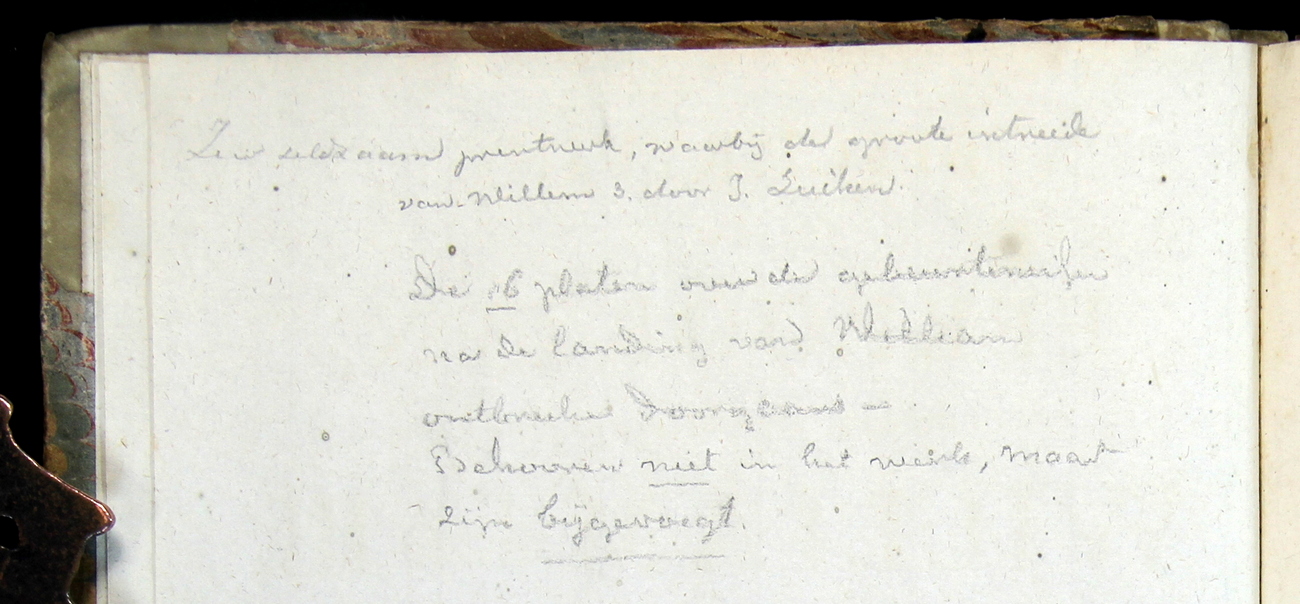 Zeer zeldzaam prentwerk, waarbij de groote intreede
van Willem 3. door J. Luiken.
De 16 platen over de gebeurtenissen
na de landing van William
ontbreken doorgaans —
Behooren niet in het werk, maar
zijn bijgevoegt.